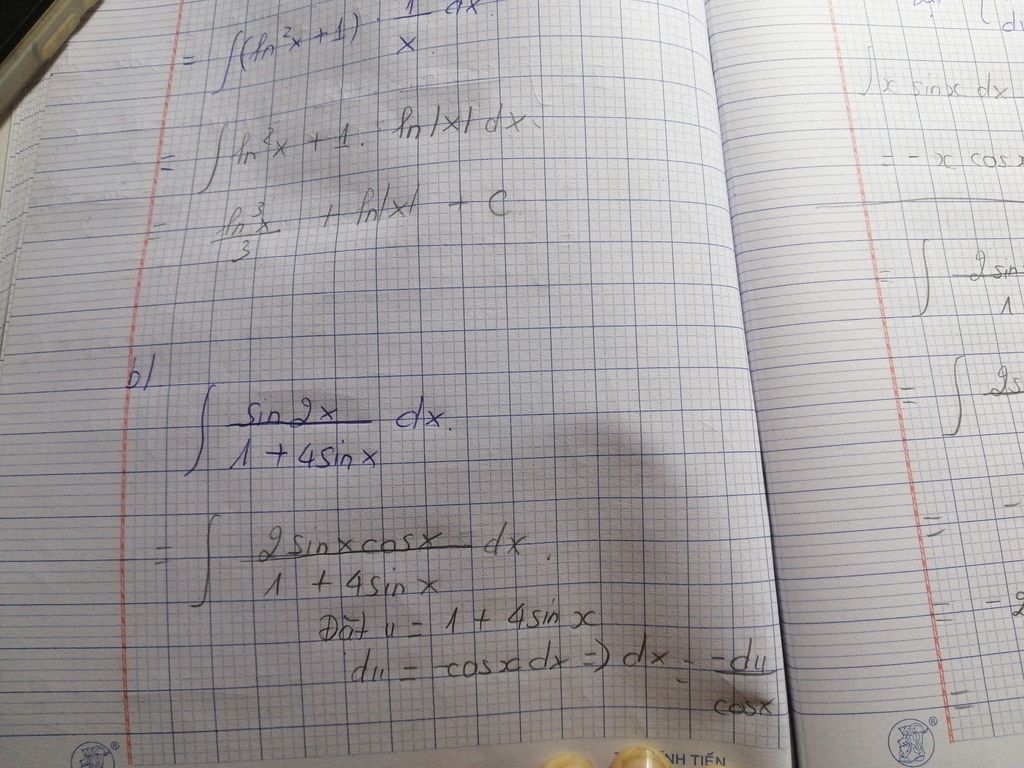 = ∫(ln²x + 1) . 1/x dx
= ∫ ln²x + 1 . ln|x| dx.
= ln³x/3 + ln|x| + C
b/
∫ sin2x/(1 + 4sinx) dx.
= ∫ 2sinxcosx/(1 + 4sinx) dx.
Đặt u = 1 + 4sinx
du = -cosx dx => dx = -du/cosx
∫ x sinx dx
= - x cosx
= ∫ 2sin
1
= ∫ 2s
= -
= -2
=
NH TIẾN